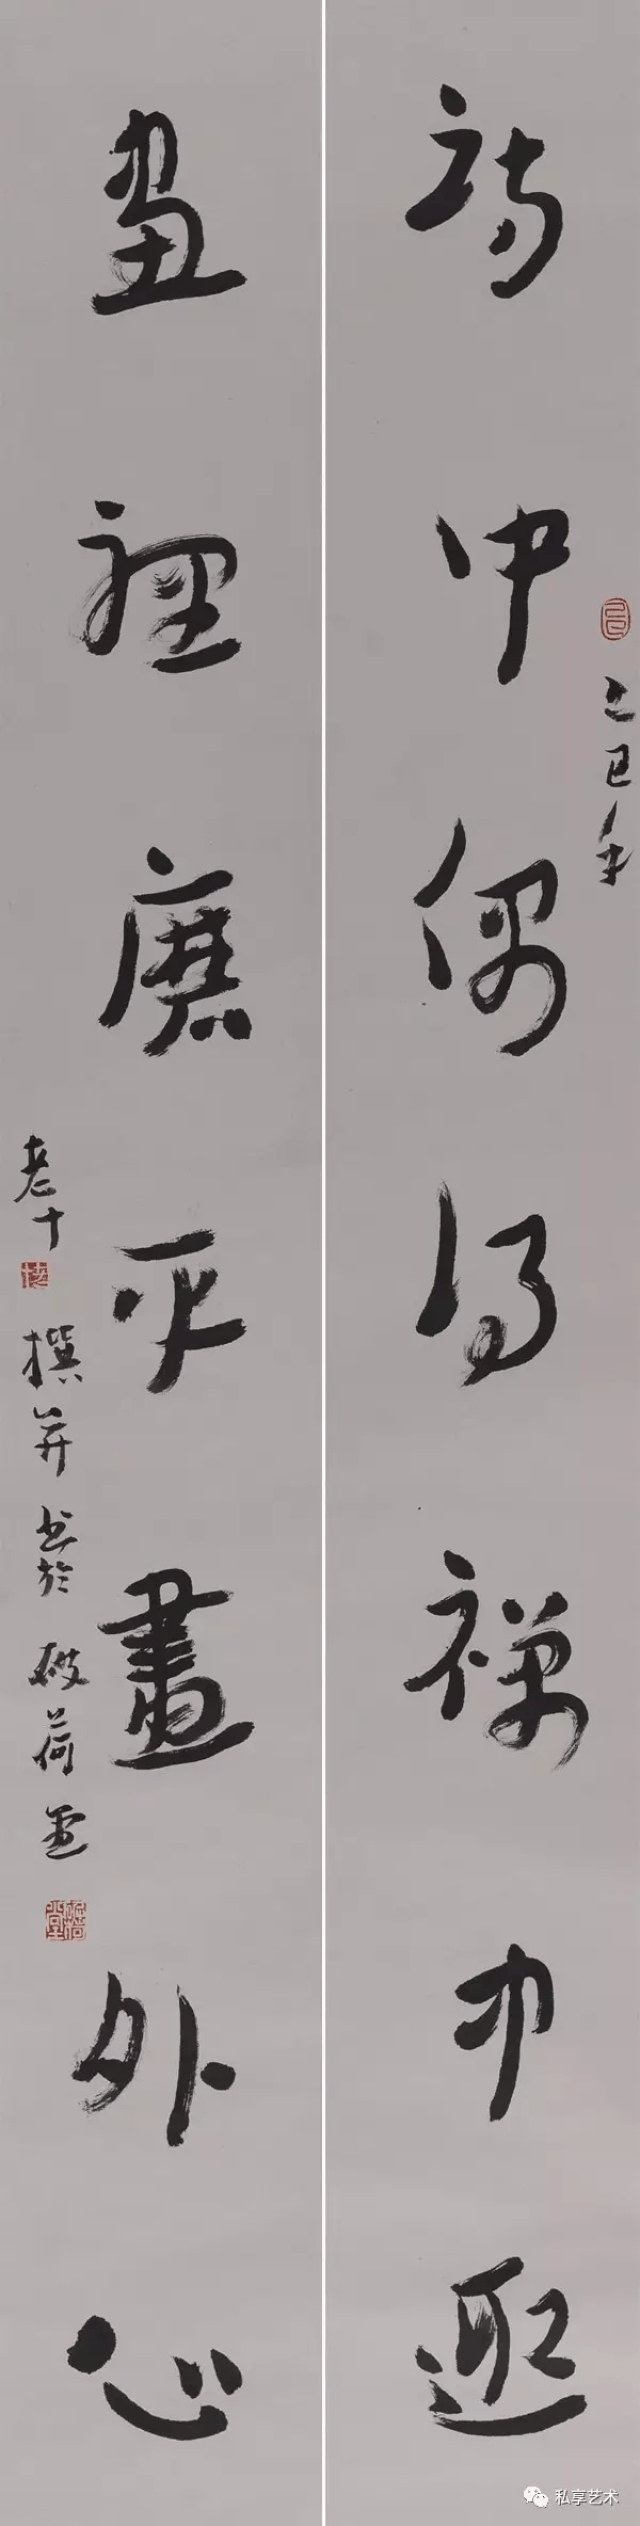 詩中偶得禪中趣
乙巳年
畫裡 畫外心
老十 撰并书於破荷堂
私享艺术